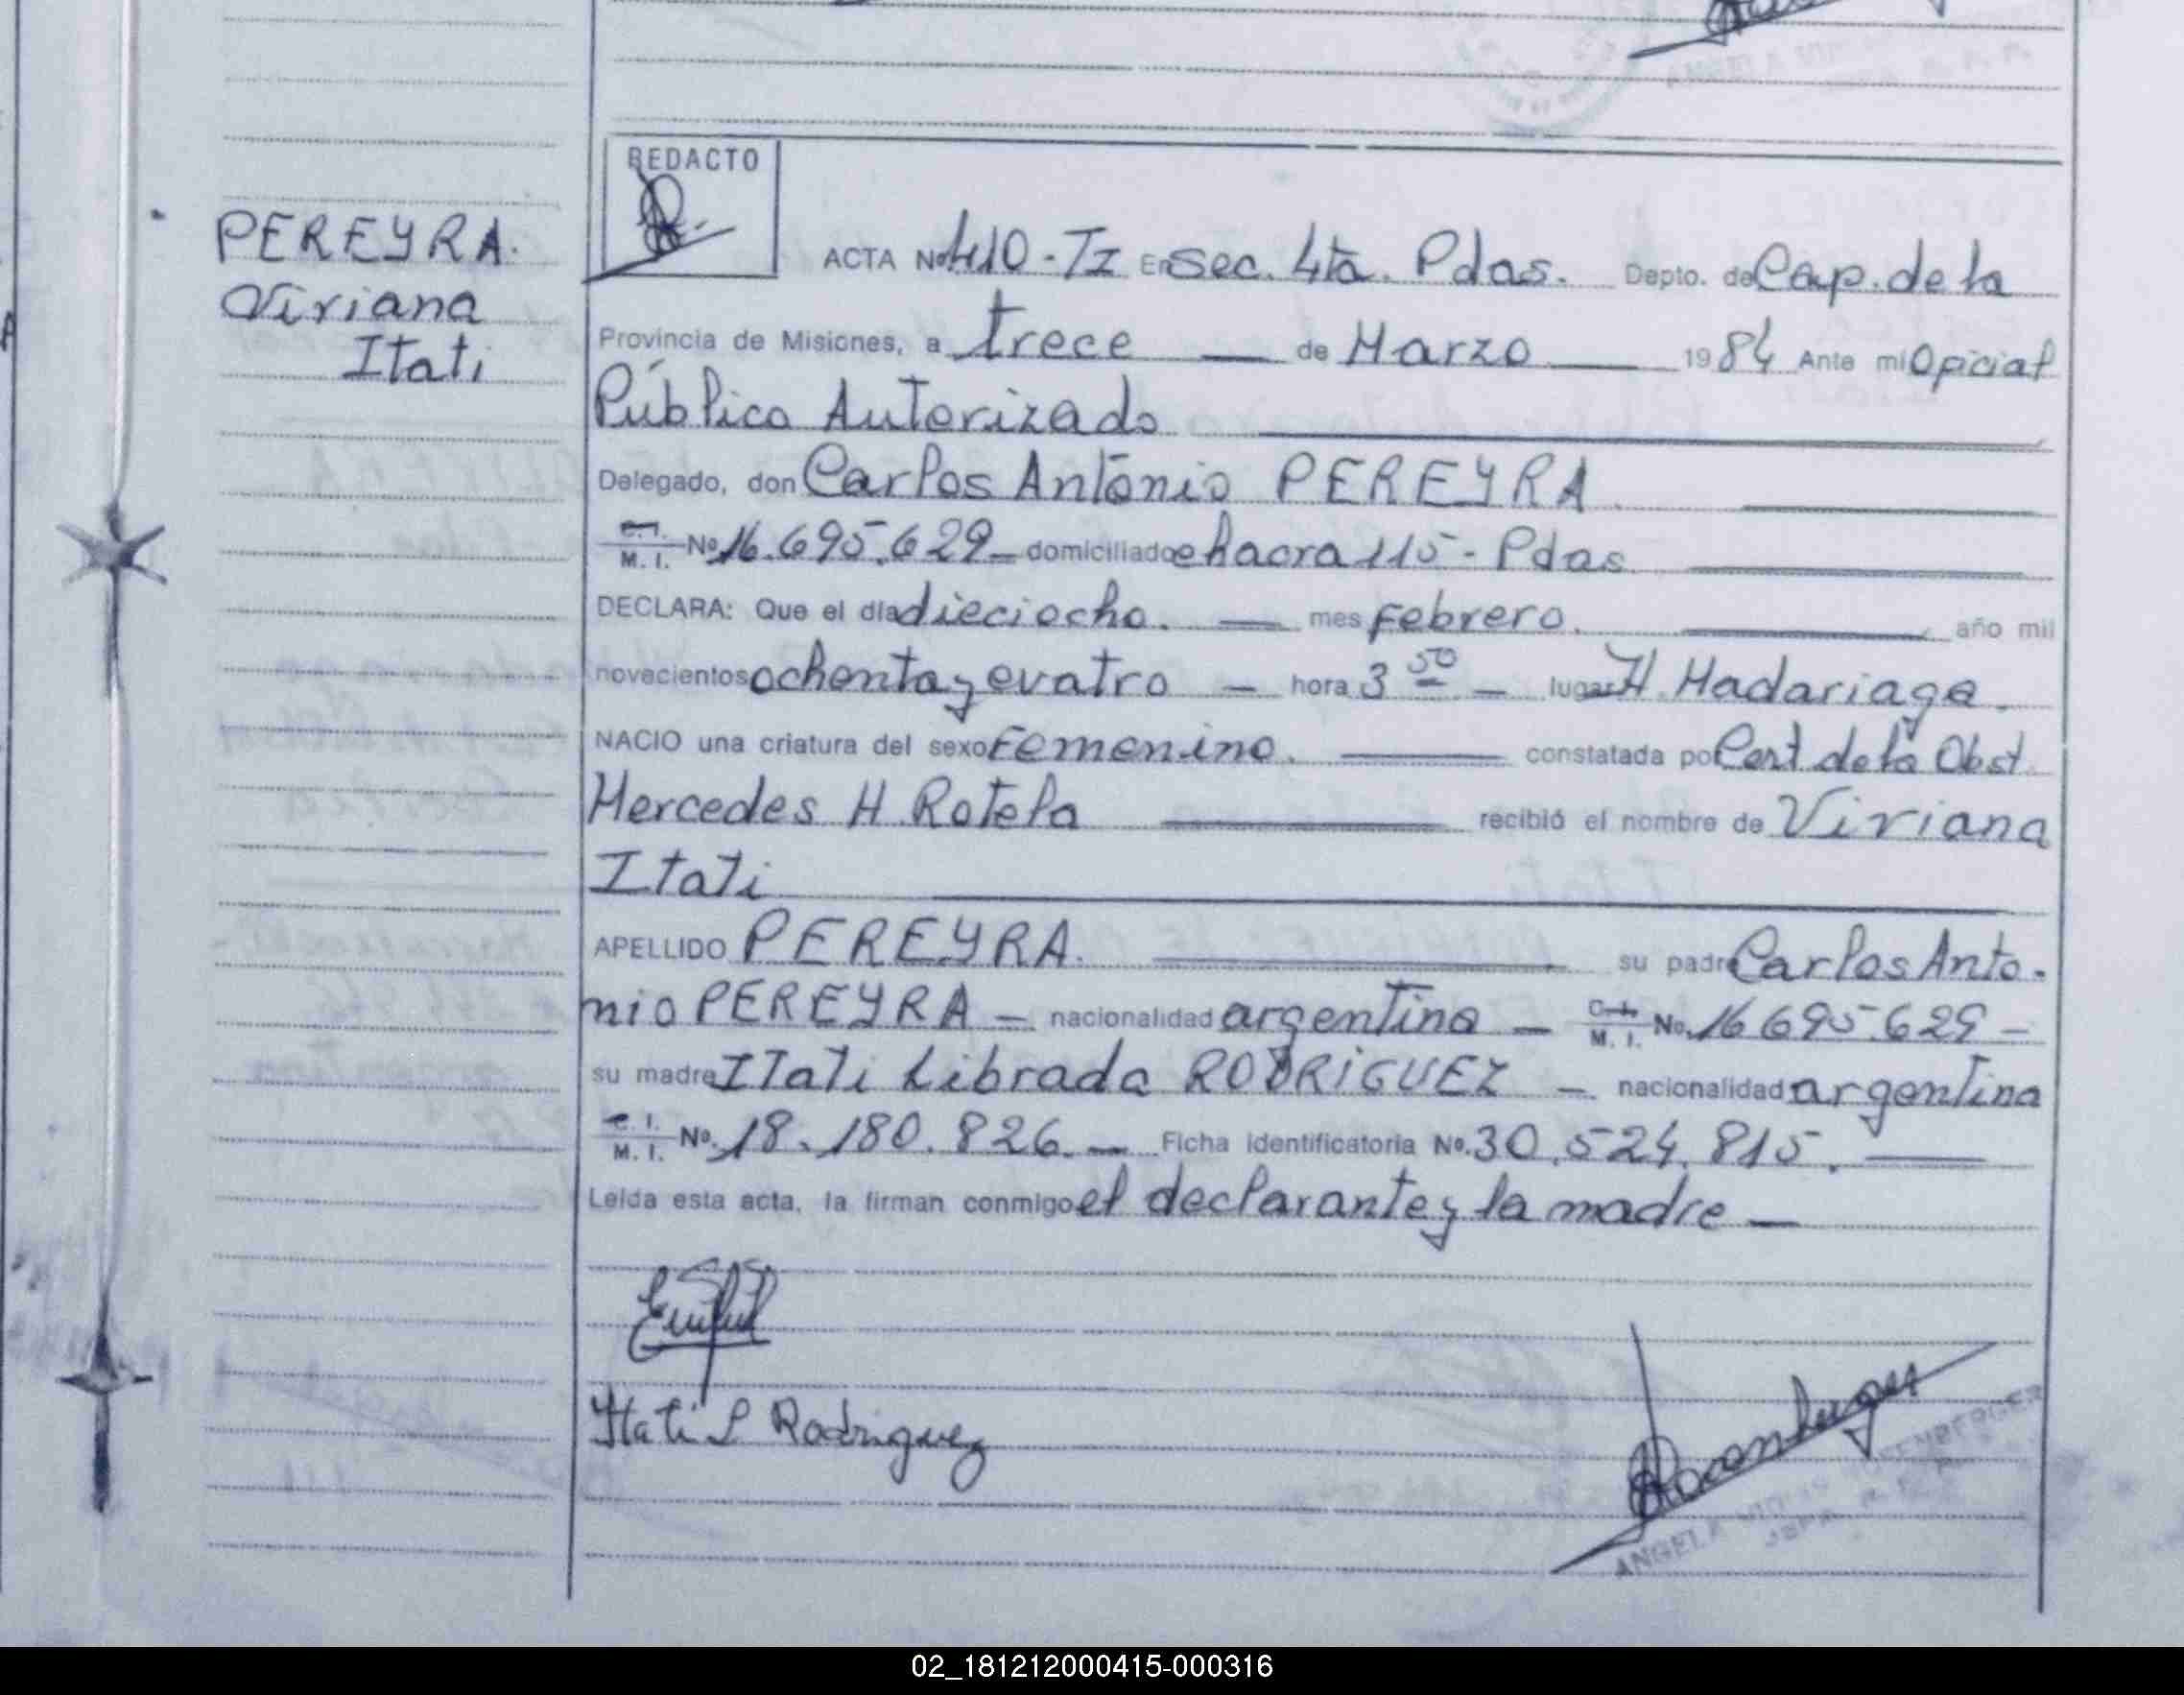 REDACTO
PEREYRA.
Viviana
Itati
ACTA Nº 410 - TI En Sec. 4ta. Pdas. Depto. de Cap. de la
Provincia de Misiones, a trece — de Marzo — 1984 Ante mi Oficial
Público Autorizado
Delegado, don Carlos Antonio PEREYRA.
C.I. M. I. Nº 16.695.629 — domiciliado chacra 115 - Pdas
DECLARA: Que el día dieciocho. — mes febrero. — año mil
novecientos ochenta y cuatro — hora 3 50 — lugar H. Madariaga.
NACIO una criatura del sexo Femenino. — constatada por Cert de la Obst.
Mercedes H Rotela — recibió el nombre de Viviana
Itati
APELLIDO PEREYRA. — su padre Carlos Anto-
nio PEREYRA — nacionalidad argentina — C.I. M. I. No. 16 695.629 —
su madre Itati Librada RODRIGUEZ — nacionalidad argentina
C. I. M. I. Nº. 18.180.826. — Ficha identificatoria Nº. 30.524.815. —
Leída esta acta, la firman conmigo el declarante y la madre —
Itati L Rodriguez
ANGELA
02_181212000415-000316